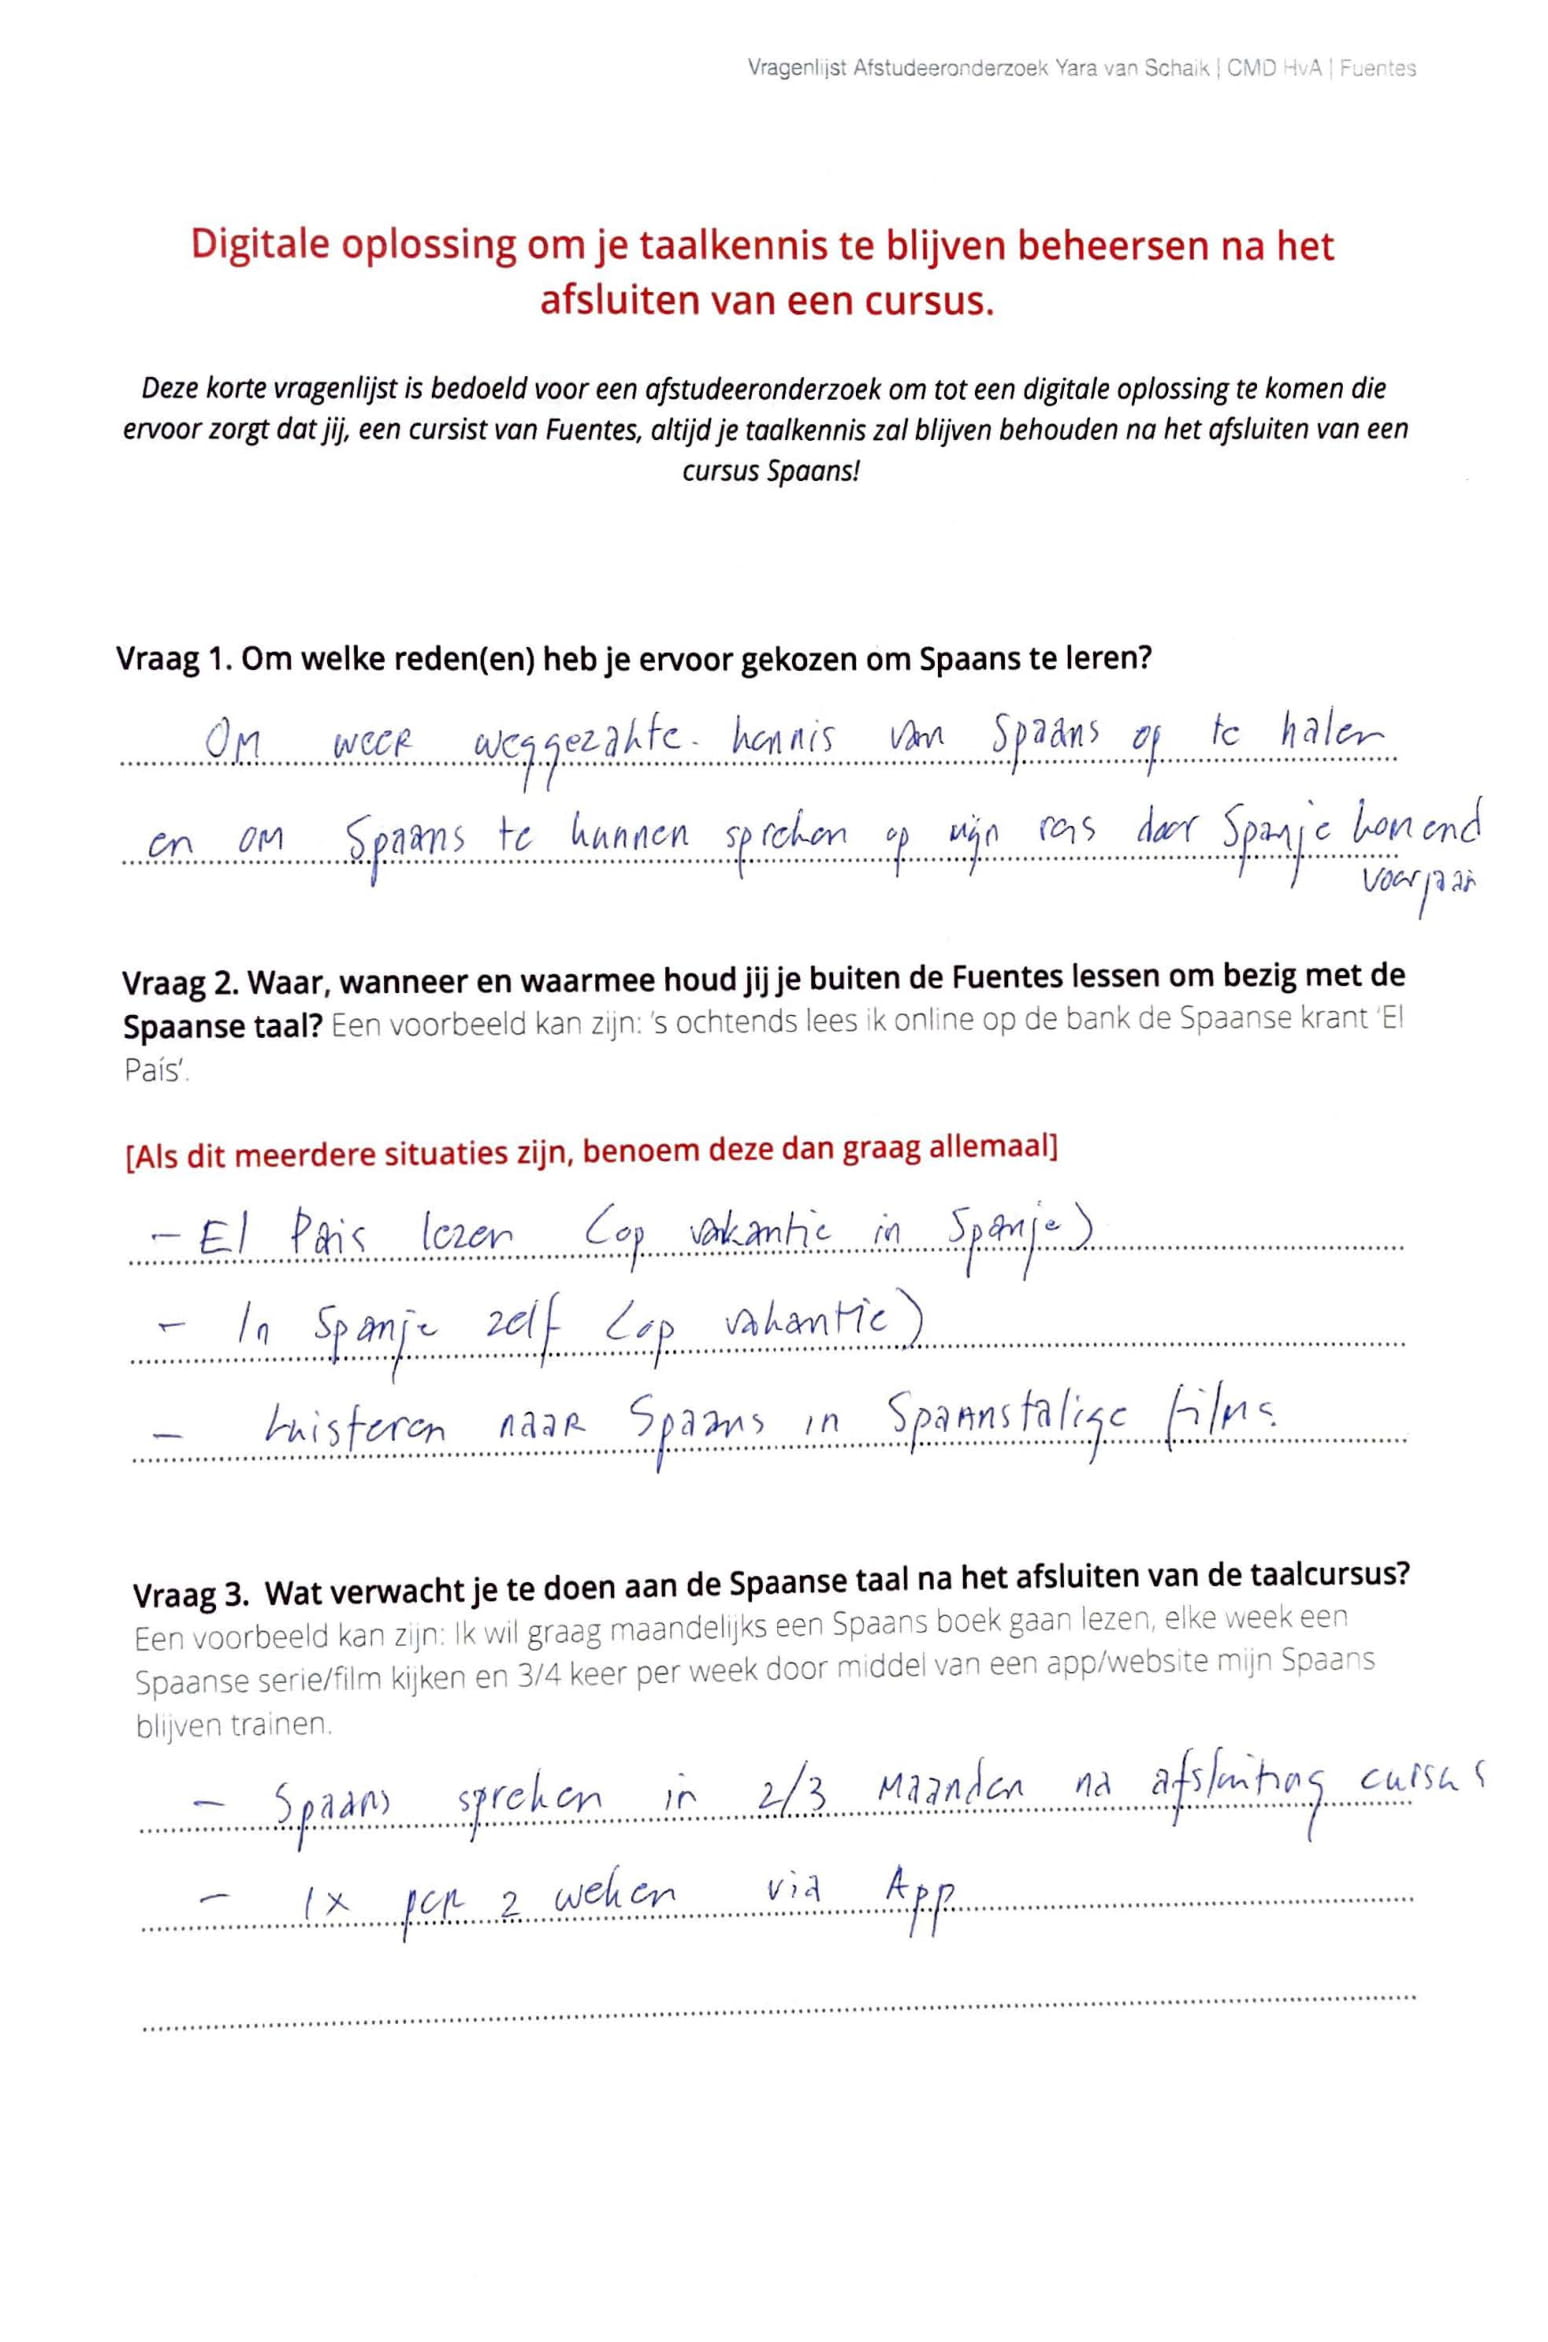 Vragenlijst Afstudeeronderzoek Yara van Schaik | CMD HvA | Fuentes
Digitale oplossing om je taalkennis te blijven beheersen na het
afsluiten van een cursus.
Deze korte vragenlijst is bedoeld voor een afstudeeronderzoek om tot een digitale oplossing te komen die
ervoor zorgt dat jij, een cursist van Fuentes, altijd je taalkennis zal blijven behouden na het afsluiten van een
cursus Spaans!
Vraag 1. Om welke reden(en) heb je ervoor gekozen om Spaans te leren?
Om weer weggezakte kennis van Spaans op te halen
en om Spaans te kunnen spreken op mijn reis door Spanje komend
voorjaar
Vraag 2. Waar, wanneer en waarmee houd jij je buiten de Fuentes lessen om bezig met de
Spaanse taal? Een voorbeeld kan zijn: 's ochtends lees ik online op de bank de Spaanse krant 'El
País'.
[Als dit meerdere situaties zijn, benoem deze dan graag allemaal]
- El Pais lezen (op vakantie in Spanje)
- In Spanje zelf (op vakantie)
- Luisteren naar Spaans in Spaanstalige films.
Vraag 3. Wat verwacht je te doen aan de Spaanse taal na het afsluiten van de taalcursus?
Een voorbeeld kan zijn: Ik wil graag maandelijks een Spaans boek gaan lezen, elke week een
Spaanse serie/film kijken en 3/4 keer per week door middel van een app/website mijn Spaans
blijven trainen.
- Spaans spreken in 2/3 maanden na afsluiting cursus
- 1x per 2 weken via App